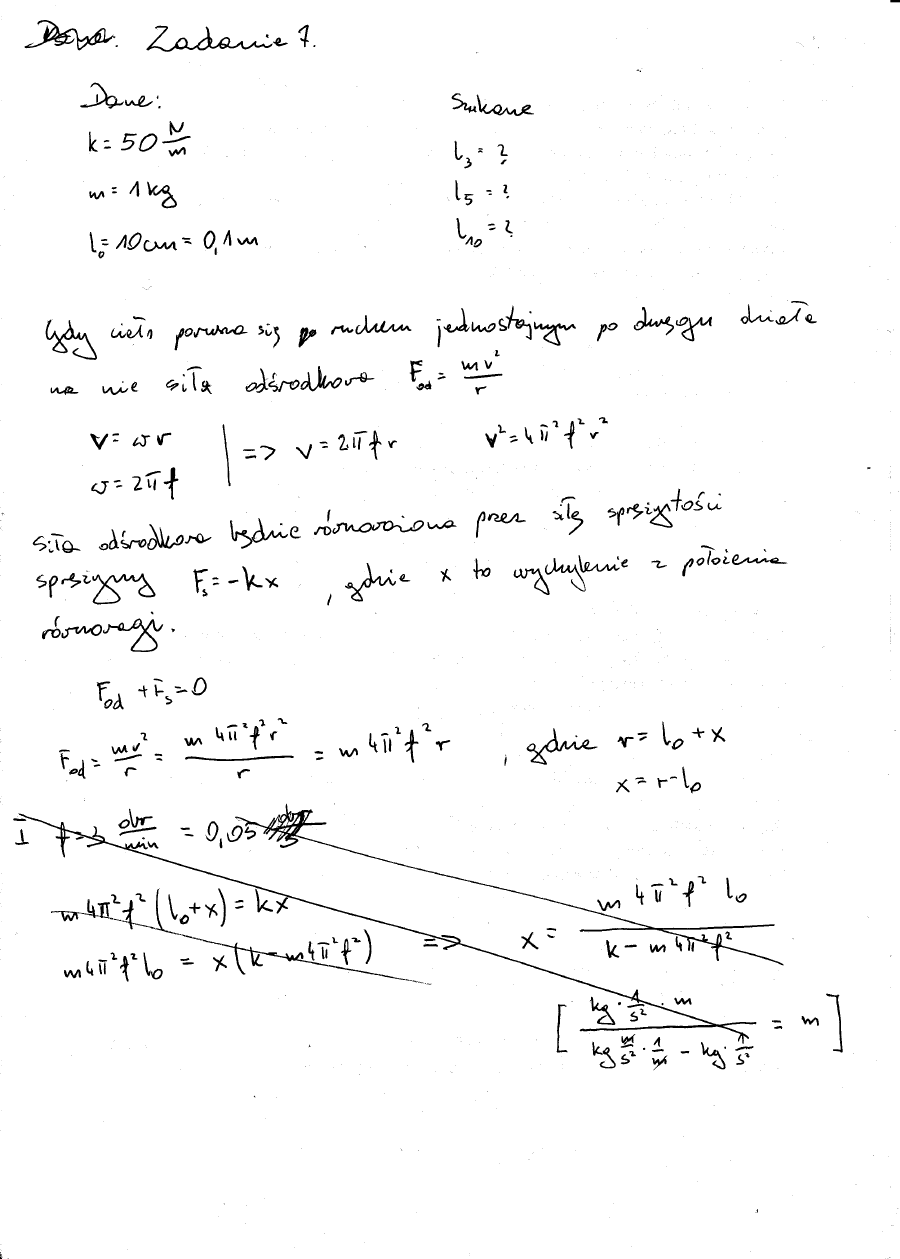 Zadanie 7.
Dane:
Szukane
k = 50 N/m
l₃ = ?
m = 1 kg
l₅ = ?
l₀ = 10cm = 0,1m
l₁₀ = ?
Gdy ciało porusza się po ruchem jednostajnym po okręgu działa
na nie siła odśrodkowa F_od = mv²/r
v = ωr
ω = 2πf
=> v = 2πfr
v² = 4π²f²r²
Siła odśrodkowa będzie równoważona przez siłę sprężystości
sprężyny F_s = -kx , gdzie x to wychylenie z położenia
równowagi.
F_od + F_s = 0
F_od = mv²/r = m 4π²f²r²/r = m 4π²f²r , gdzie r = l₀ + x
x = r - l₀
I f = 3 obr/min = 0,05
m4π²f²(l₀+x) = kx
m4π²f²l₀ = x(k - m4π²f²) => x = m4π²f² l₀/(k - m4π²f²)
[kg · 1/s² · m/(kg m/s² · 1/m - kg · 1/s²) = m]